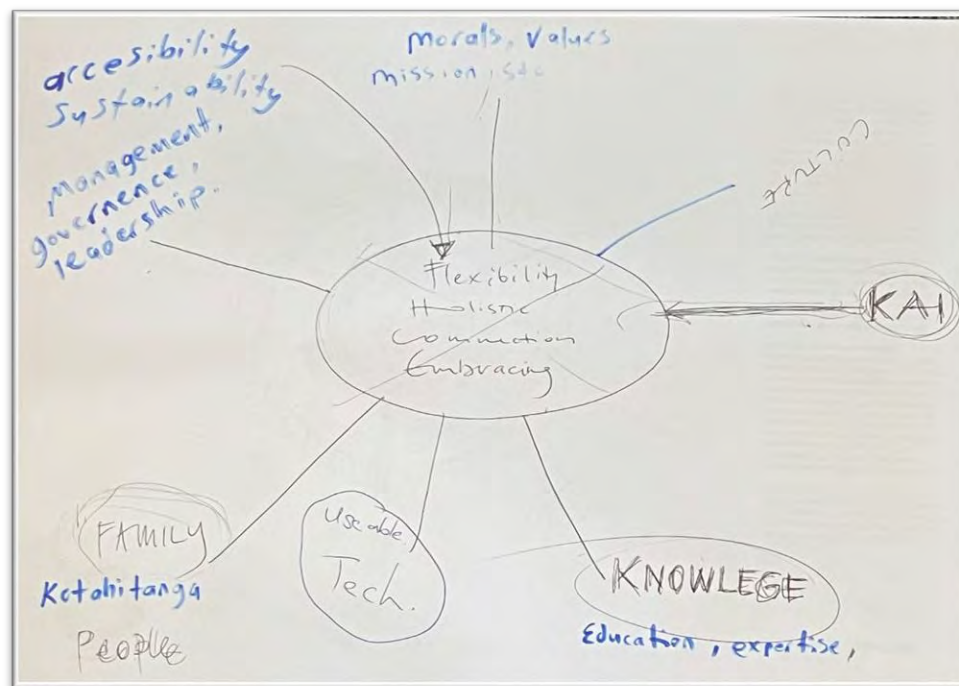 accesibility
Sustainability
Management,
governence,
leadership.
Morals, Values
mission, sdc
CULTURE
Flexibility
Holistic
Connection
Embracing
KAI
FAMILY
Kotahitanga
People
Useable
Tech.
KNOWLEGE
Education, expertise,